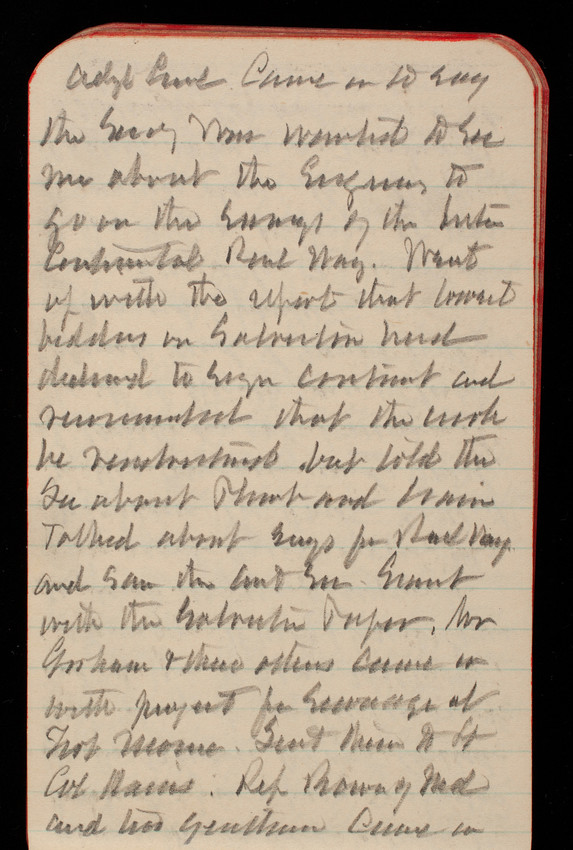 Came in to say
the Secy War wanted to see
me about the Engineers to
go on the surveys of the Inter
Continental Rail Way. Went
up with the report that lowest
bidders on Galveston had
declined to sign contract and
that the work
be but told the
Sec about Plant and
Talked about Engs for Rail Way
and saw the Asst Sec Grant
with the Galveston Paper. Mr
Gorham & three others came in
with project for at
Sent him to Lt
Col . Rep Brown of Md
and two gentlemen came in